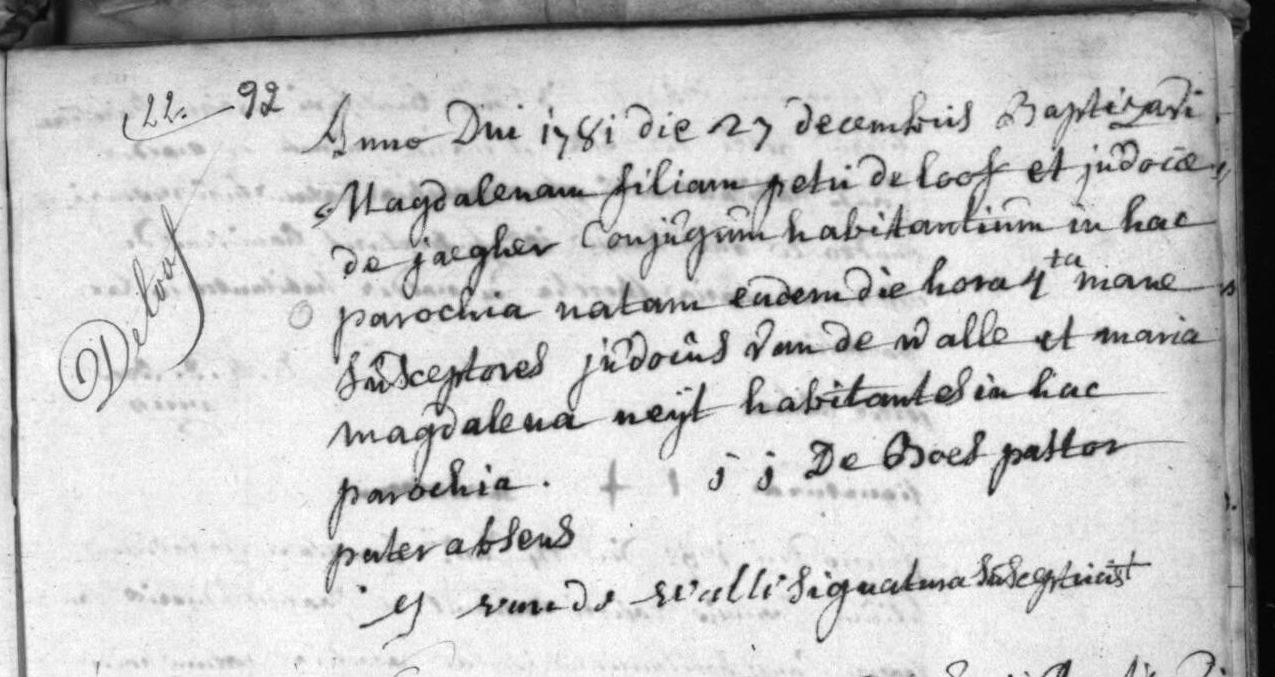 22. 92
Anno Dni 1781 die 27 decembris Baptizavi
Magdalenam filiam petri de loof et judocæ
de jaegher conjugum habitantium in hac
Deloof
parochia natam eadem die hora 4ta mane
susceptores judocus van de walle et maria
magdalena neyt habitantes in hac
parochia. j j De Boes pastor
pater absens
J van de walle signatura susceptricis +